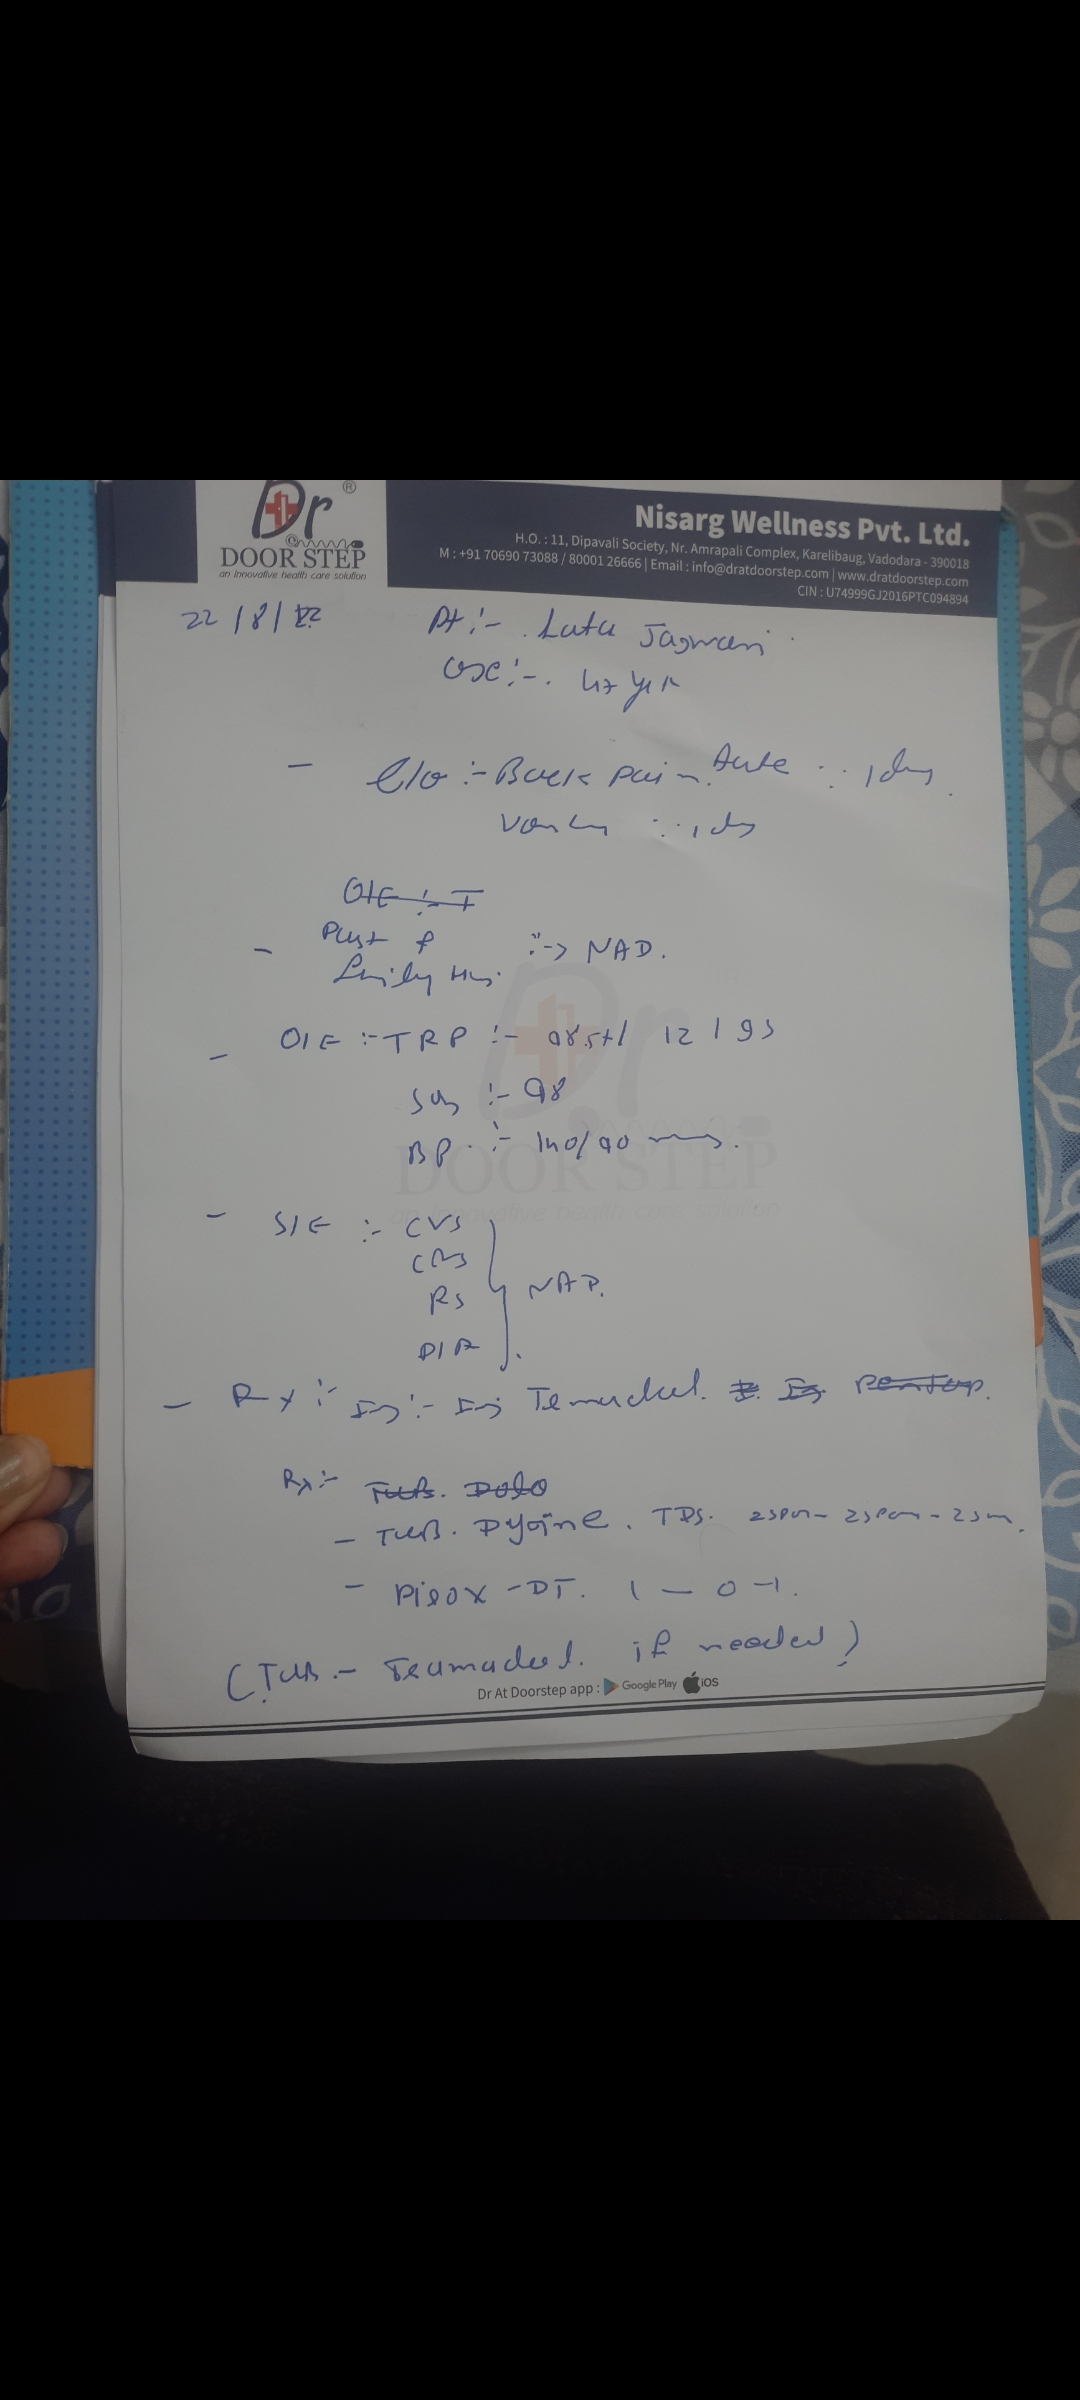 Dr ®
DOOR STEP
an innovative health care solution
Nisarg Wellness Pvt. Ltd.
H.O. : 11, Dipavali Society, Nr. Amrapali Complex, Karelibaug, Vadodara - 390018
M : +91 70690 73088 / 80001 26666 | Email : info@dratdoorstep.com | www.dratdoorstep.com
CIN : U74999GJ2016PTC094894
22/8/22
Pt :- Lata Jagwani
yr
- C/o :- Back pain. 1 day.
1 day
O/E :- T
- Past &
Family :-> NAD.
- O/E :- TRP :- 98.5+/ 12 / 93
:- 98
BP :- 140/90
- S/E :- CVS
CNS
RS
NAD.
- Rx :- Inj :- Inj Tramadol. Inj Pantop.
Rx :- Tab. Dolo
- Tab. TDS.
- Pirox - DT. 1 - 0 - 1.
(Tab. - Tramadol. if needed)
Dr At Doorstep app : Google Play iOS
Dr
DOOR STEP
an innovative health care solution